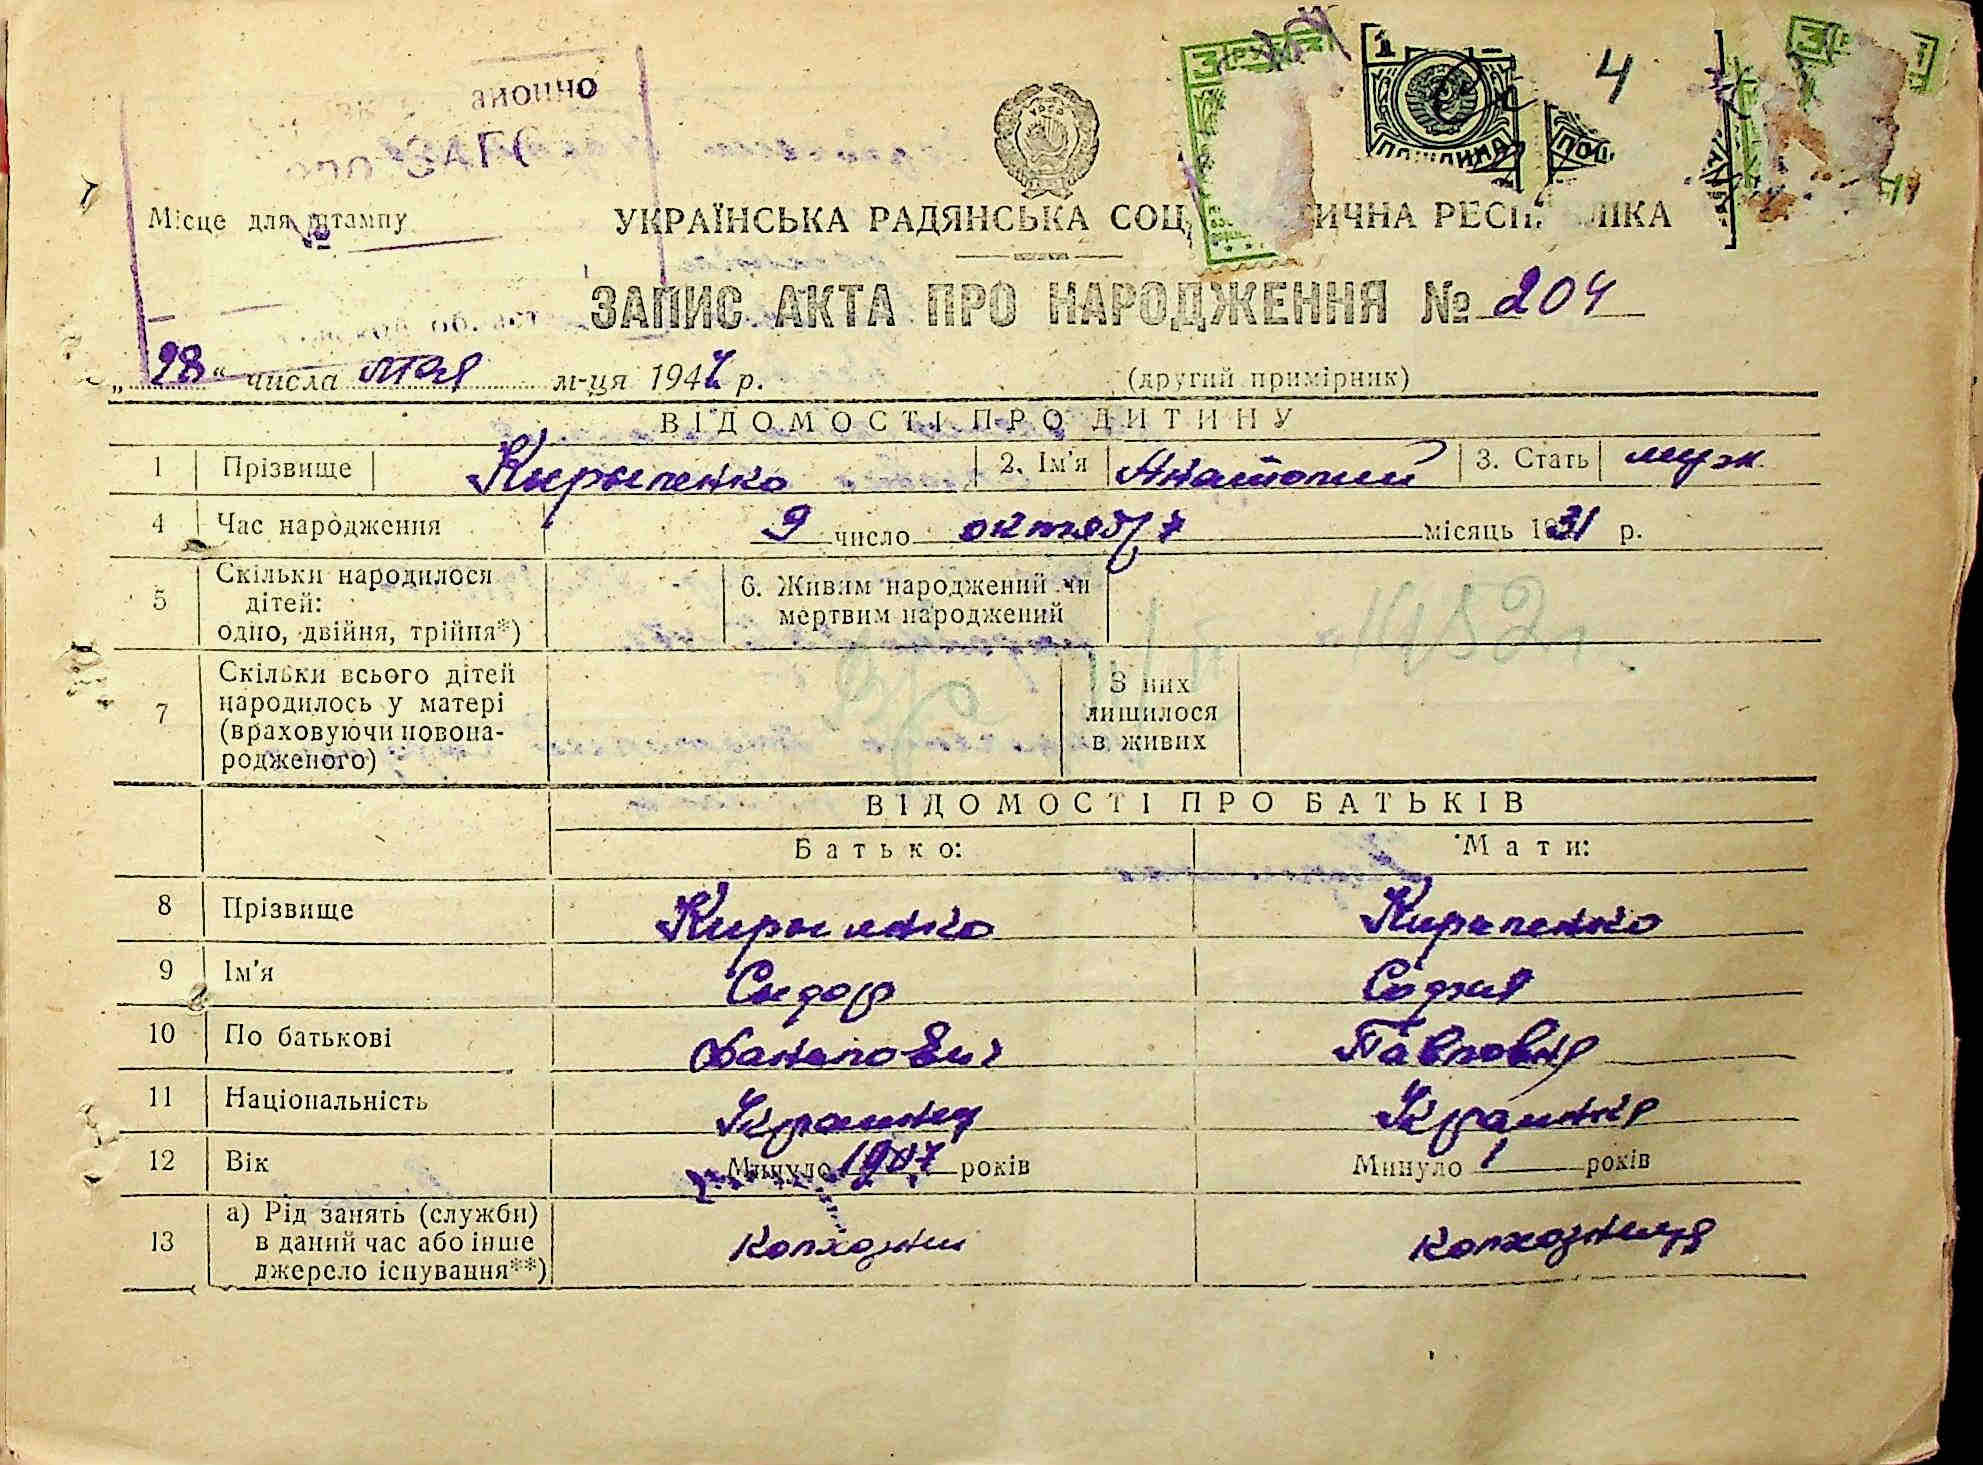 ЗАГС
4
Місце для штампу
№
УКРАЇНСЬКА РАДЯНСЬКА СОЦ ИЧНА РЕСП ЛІКА
ЗАПИС АКТА ПРО НАРОДЖЕННЯ № 204
„28“ числа мая м-ця 194 р.
(другий примірник)
ВІДОМОСТІ ПРО ДИТИНУ
1 Прізвище Кирыленко 2. Ім'я Анатолий 3. Стать муж.
4 Час народження 9 число октября місяць 1931 р.
5 Скільки народилося дітей: одно, двійня, трійня*) 6. Живим народжений чи мертвим народжений
1952г.
7 Скільки всього дітей народилось у матері (враховуючи новонародженого) З них лишилося в живих
ВІДОМОСТІ ПРО БАТЬКІВ
Батько: Мати:
8 Прізвище Кирыленко Кирыленко
9 Ім'я Сидор София
10 По батькові Данилович Павловна
11 Національність Украинец Украинка
12 Вік Минуло 1907 років Минуло років
13 а) Рід занять (служби) в даний час або інше джерело існування**) колхозник колхозница